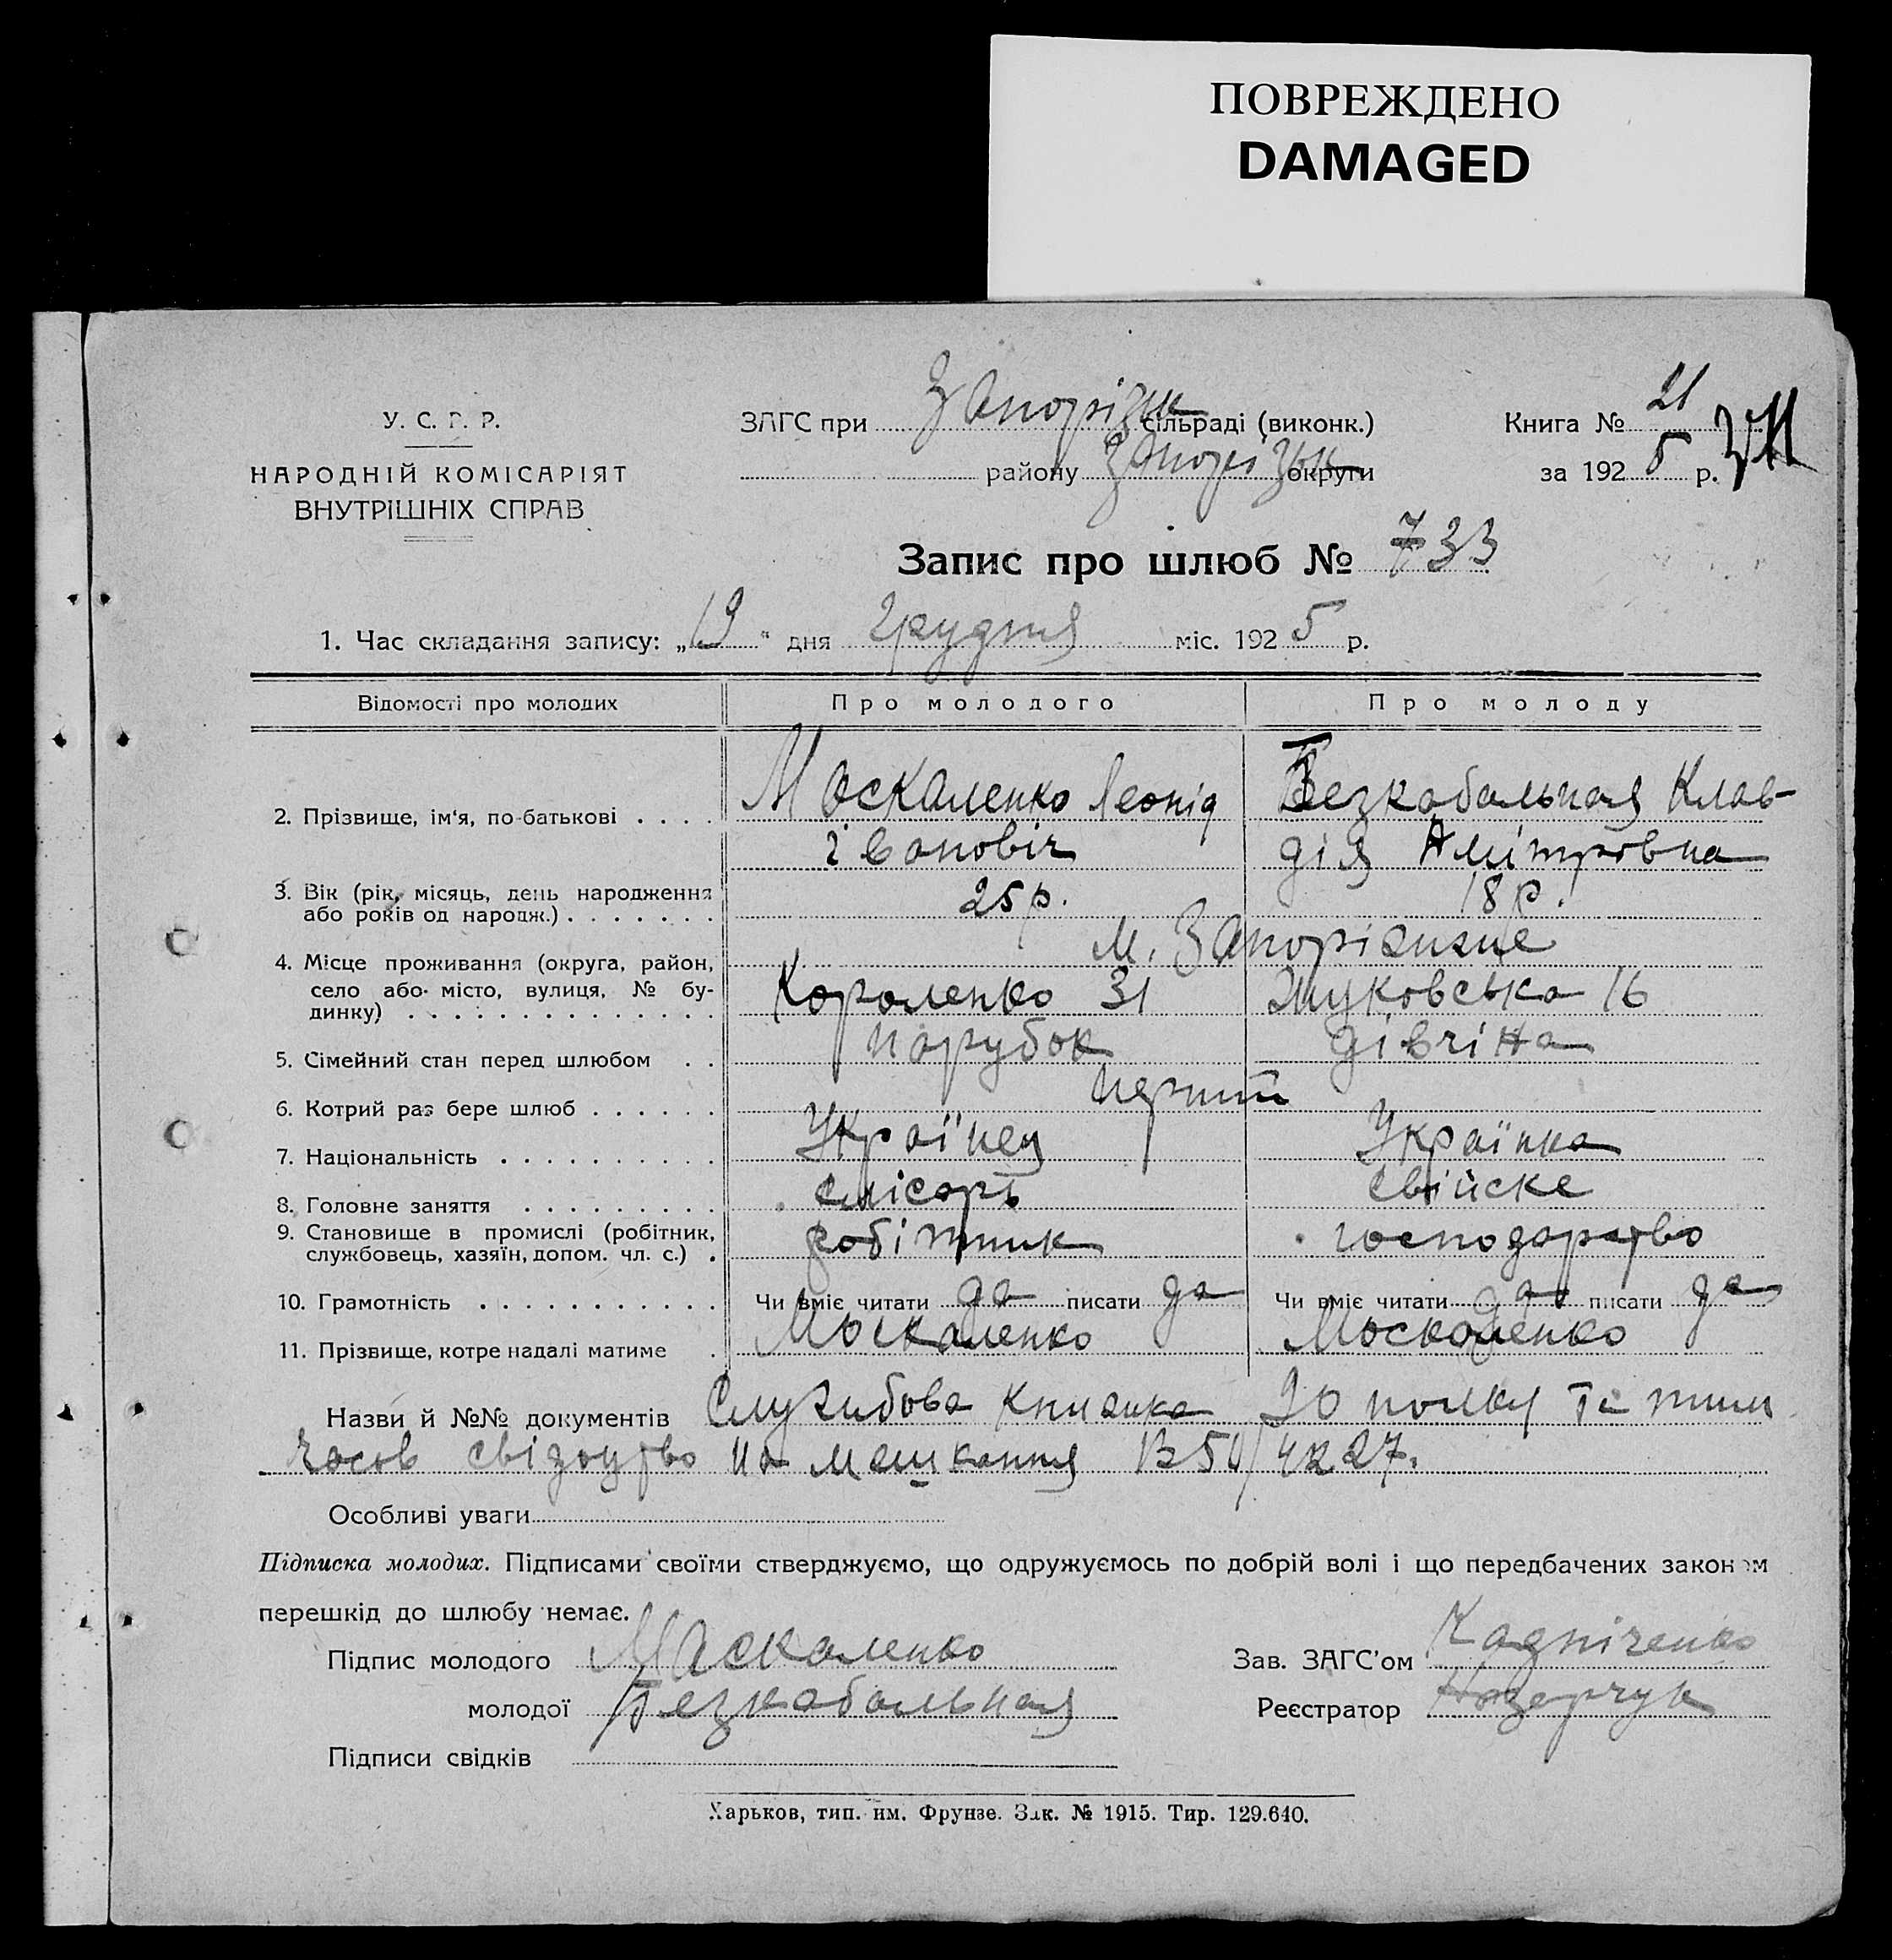 ПОВРЕЖДЕНО
DAMAGED
У. С. Р. Р.
НАРОДНІЙ КОМІСАРІЯТ
ВНУТРІШНІХ СПРАВ
ЗАГС при Запорізьк сільраді (виконк.)
району Запорізьк округи
Книга № 21
за 192 5 р.
Запис про шлюб № 733
1. Час складання запису: „19" дня грудня міс. 192 5 р.
Відомості про молодих
Про молодого
Про молоду
2. Прізвище, ім'я, по-батькові . . . .
Москаленко Леонід
івановіч
Безкабальная Клав-
дія Дмітровна
3. Вік (рік, місяць, день народження
або років од народж.) . . . . . . .
25 р.
18 р.
4. Місце проживання (округа, район,
село або місто, вулиця, № бу-
динку) . . . . . . . . . . . . . .
м. Запоріжже
Короленко 31
Жуковська 16
5. Сімейний стан перед шлюбом . .
парубок
дівчіна
6. Котрий раз бере шлюб . . . . . .
перший
7. Національність . . . . . . . . . .
Українец
Українка
8. Головне заняття . . . . . . . . .
слісарь
свійске
9. Становище в промислі (робітник,
службовець, хазяїн, допом. чл. с.) .
робітник
господарство
10. Грамотність . . . . . . . . . . .
Чи вміє читати да писати да
Чи вміє читати да писати да
11. Прізвище, котре надалі матиме .
Москаленко
Москаленко
Назви й №№ документів Служибова книжка 30 полку та тим
часов свідоцтво на мешкання В 50/4227.
Особливі уваги
Підписка молодих. Підписами своїми стверджуємо, що одружуємось по добрій волі і що передбачених законом
перешкід до шлюбу немає.
Підпис молодого Маскаленко
молодої Безкабальная
Підписи свідків
Зав. ЗАГС'ом
Реєстратор Назарчук
Харьков, тип. им. Фрунзе. Зак. № 1915. Тир. 129.640.